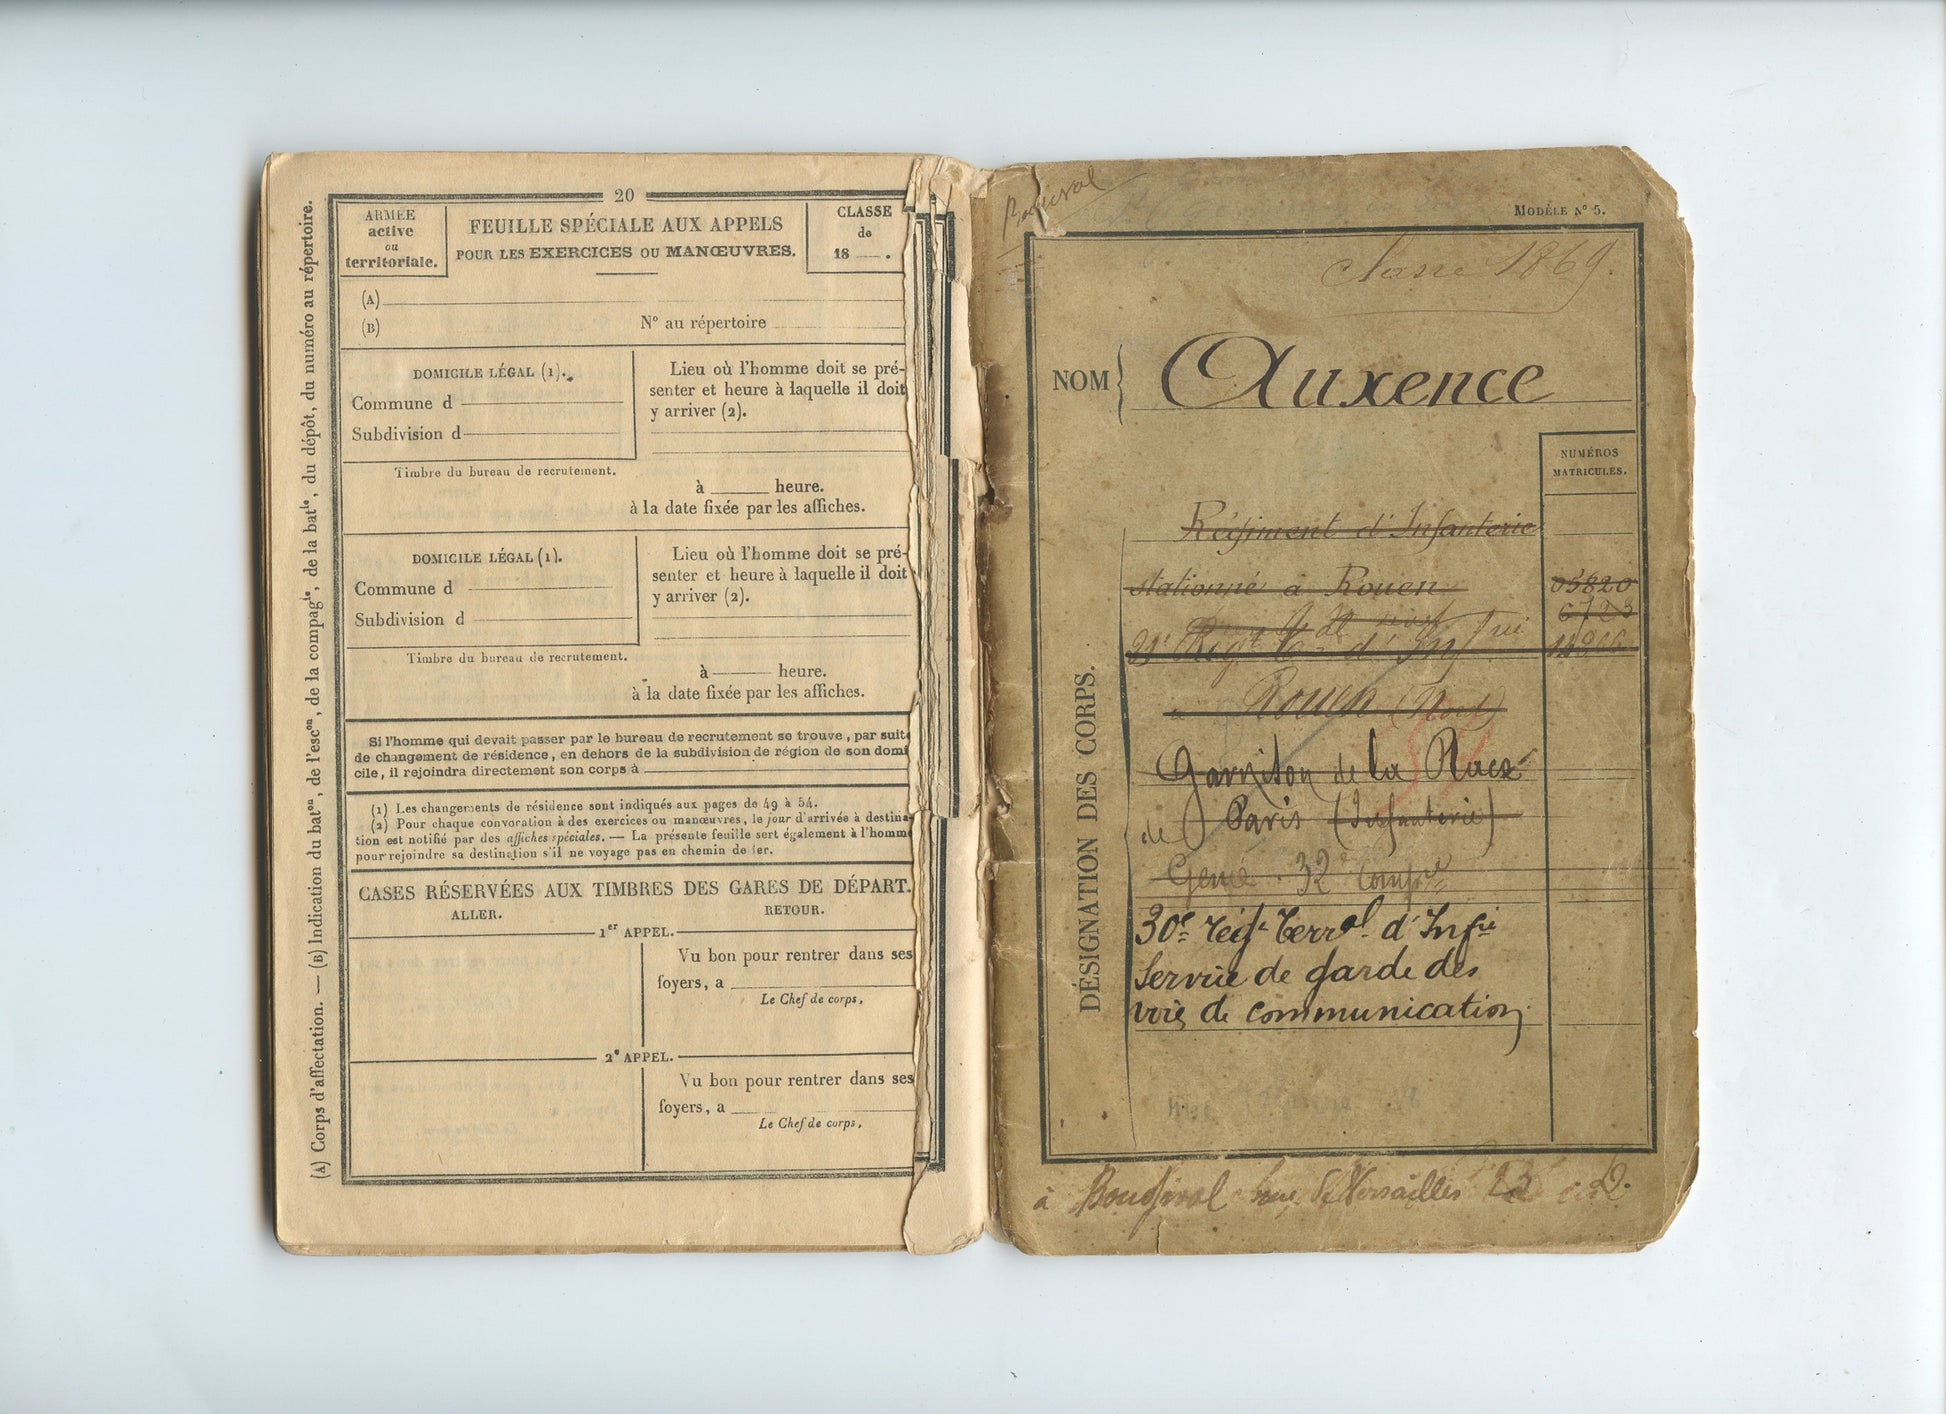 20
ARMÉE
active
ou
territoriale.
FEUILLE SPÉCIALE AUX APPELS
POUR LES EXERCICES OU MANŒUVRES.
CLASSE
de
18 .
(A)
(B) N° au répertoire
DOMICILE LÉGAL (1).
Commune d
Subdivision d
Lieu où l'homme doit se pré-
senter et heure à laquelle il doit
y arriver (2).
Timbre du bureau de recrutement.
à heure.
à la date fixée par les affiches.
DOMICILE LÉGAL (1).
Commune d
Subdivision d
Lieu où l'homme doit se pré-
senter et heure à laquelle il doit
y arriver (2).
Timbre du bureau de recrutement.
à heure.
à la date fixée par les affiches.
Si l'homme qui devait passer par le bureau de recrutement se trouve, par suite
de changement de résidence, en dehors de la subdivision de région de son domi
cile, il rejoindra directement son corps à
(1) Les changements de résidence sont indiqués aux pages de 49 à 54.
(2) Pour chaque convocation à des exercices ou manœuvres, le jour d'arrivée à destina-
tion est notifié par des affiches spéciales. — La présente feuille sert également à l'homme
pour rejoindre sa destination s'il ne voyage pas en chemin de fer.
CASES RÉSERVÉES AUX TIMBRES DES GARES DE DÉPART.
ALLER.
RETOUR.
1er APPEL.
Vu bon pour rentrer dans ses
foyers, a
Le Chef de corps,
2e APPEL.
Vu bon pour rentrer dans ses
foyers, a
Le Chef de corps,
(A) Corps d'affectation. — (B) Indication du baton, de l'escon, de la compagie, de la batie, du dépôt, du numéro au répertoire.
MODÈLE N° 5.
Classe 1869.
NOM
Auxence
NUMÉROS
MATRICULES.
DÉSIGNATION DES CORPS.
Régiment d'Infanterie
stationné à Rouen
05820
6723
Régt d'Inf
à Rouen (Nord)
Garnison de la Place
de Paris (Infanterie)
Génie . 32e Compie
30e régt Terral d'Infie
Service de garde des
voies de communication
à Bougival rue de Versailles